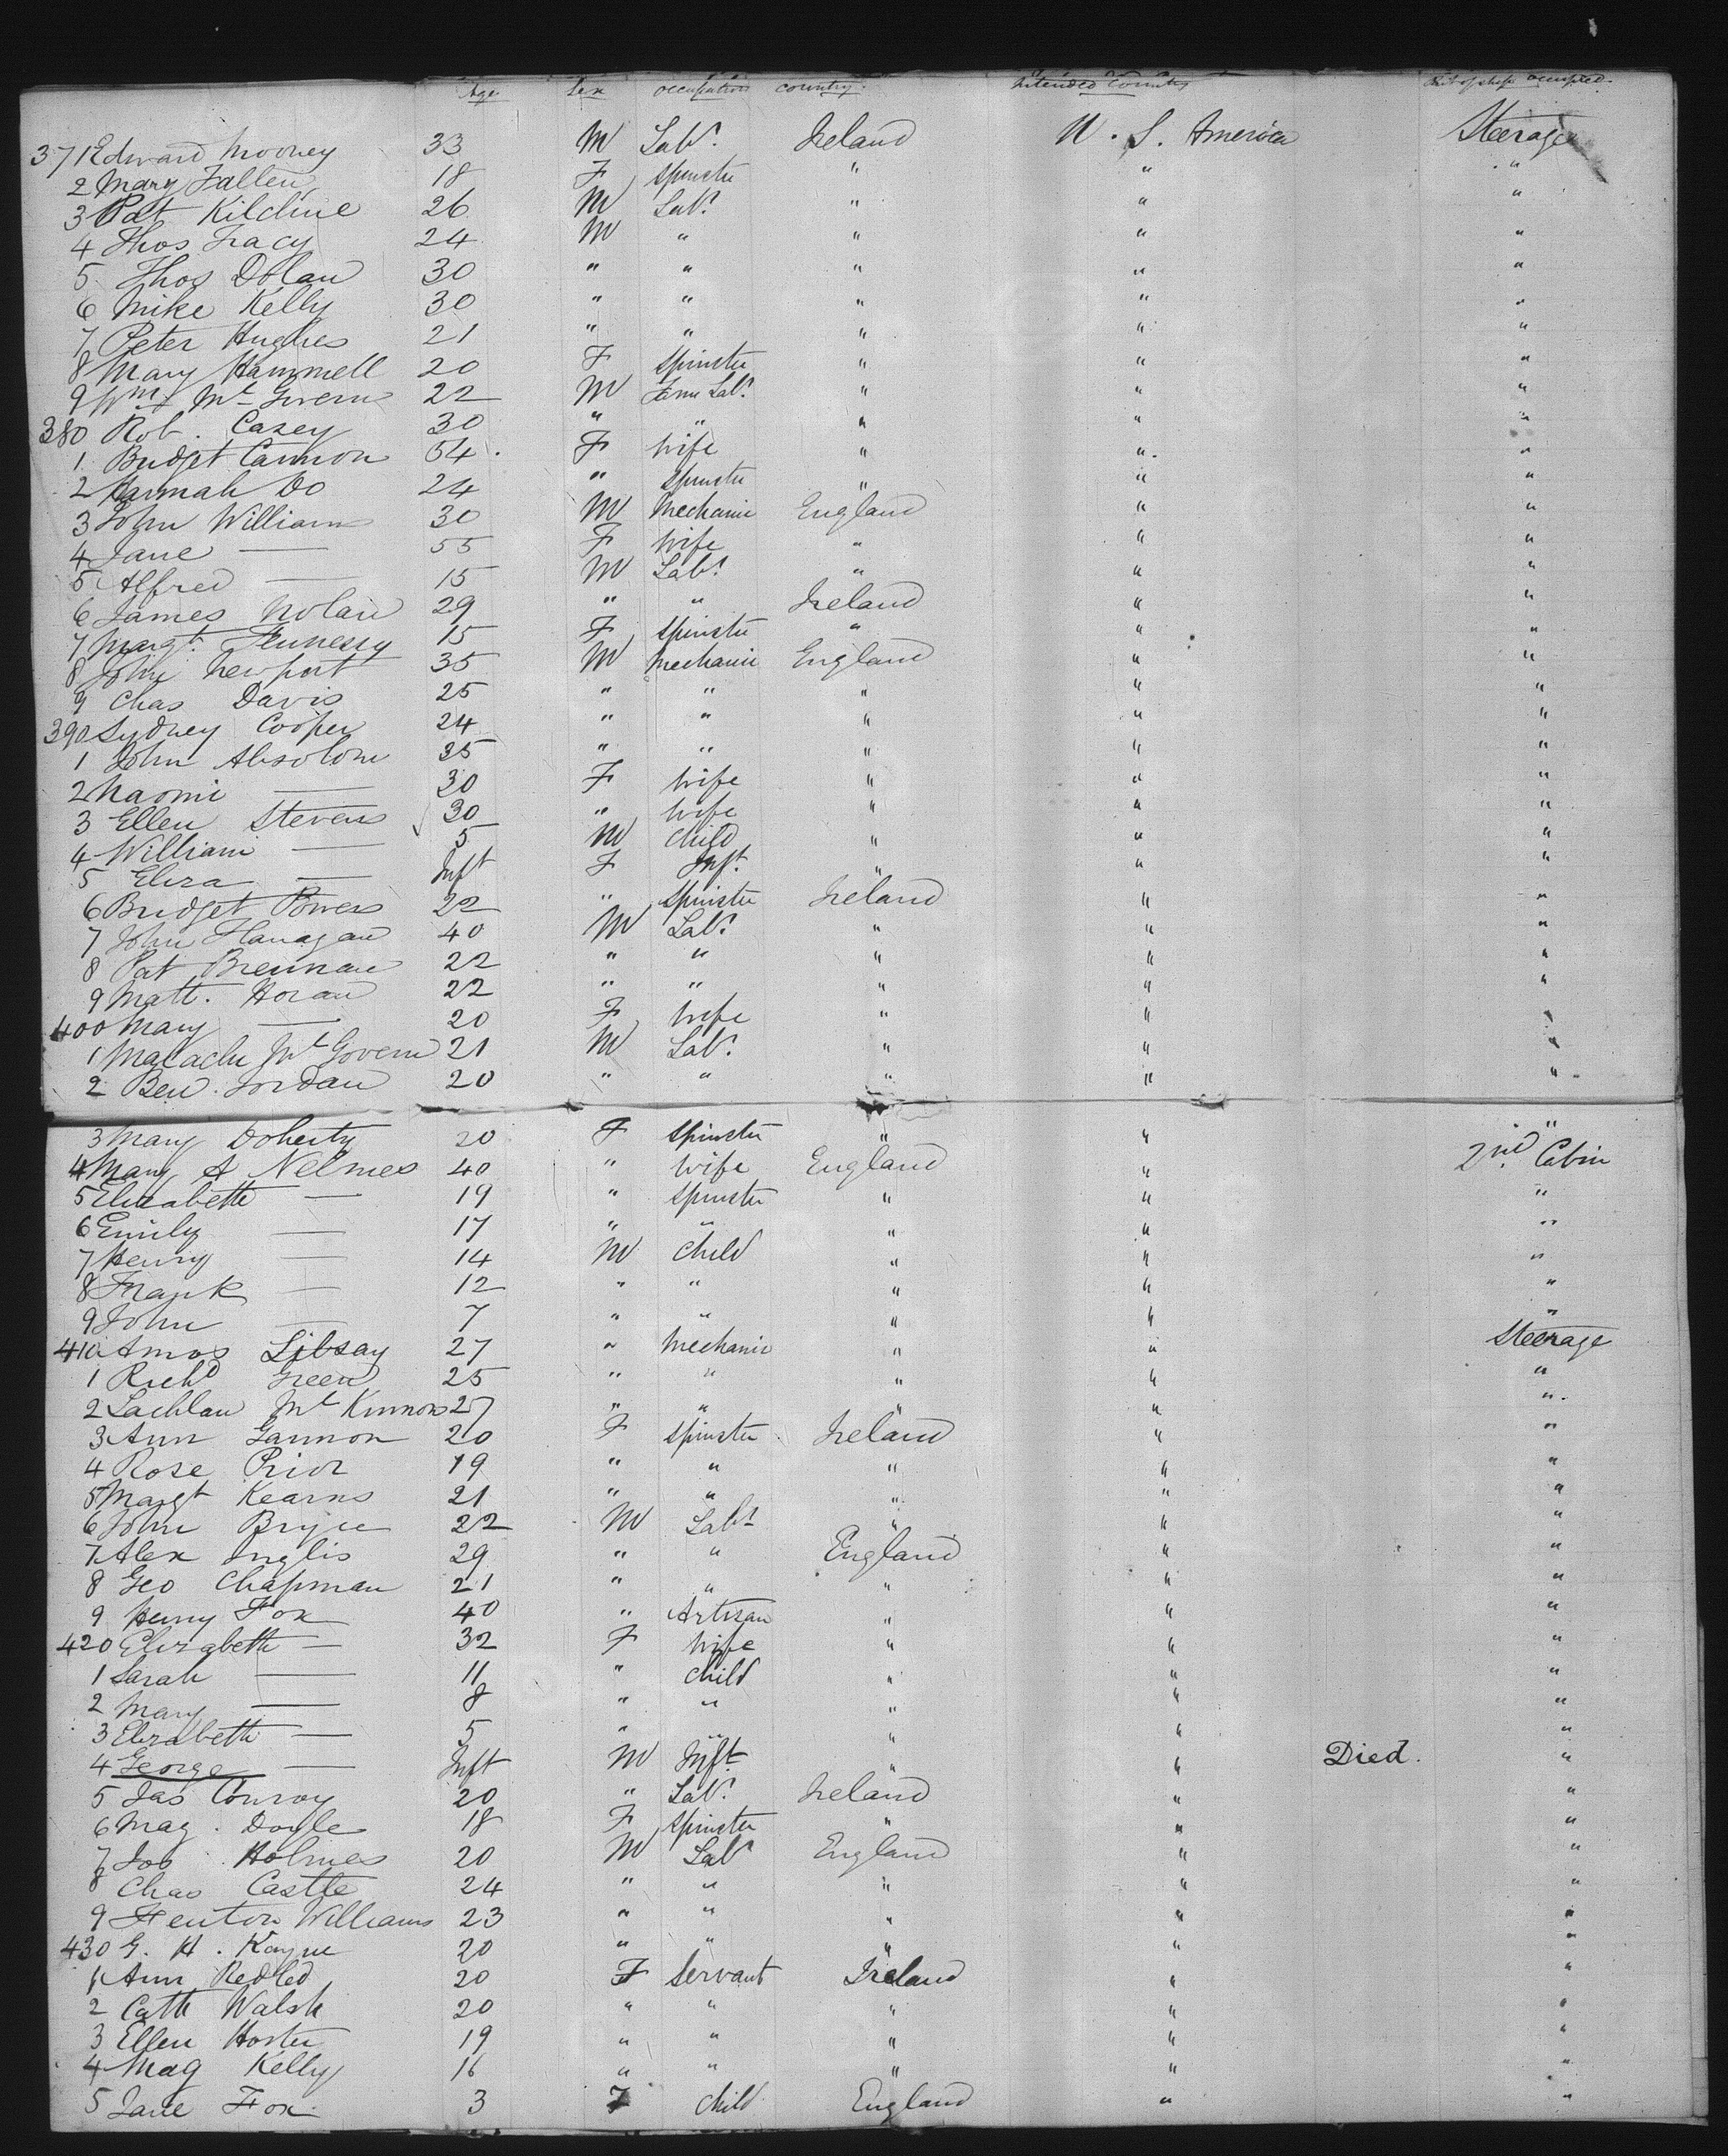 Age Sex occupation country. Intended Country Part of ship occupied.
371 Edward Mooney 33 M Labr. Ireland U. S. America Steerage
2 Mary Fallen 18 F Spinster " " "
3 Pat Kilcline 26 M Labr. " " "
4 Thos Tracy 24 M " " " "
5 Thos Dolan 30 " " " " "
6 Mike Kelly 30 " " " " "
7 Peter Hughes 21 " " " " "
8 Mary Hammell 20 F Spinster " " "
9 Wm Mc Govern 22 M Farm Labr. " " "
380 Rob. Casey 30 " " " " "
1 Bridget Cannon 54 F Wife " " "
2 Hannah Do 24 " Spinster " " "
3 John Williams 30 M Mechanic England " "
4 Jane — 55 F Wife " " "
5 Alfred — 15 M Labr. " " "
6 James Nolan 29 " " Ireland " "
7 Margt. Hennessy 15 F Spinster " " "
8 John Newport 35 M Mechanic England " "
9 Chas Davis 25 " " " " "
390 Sydney Cooper 24 " " " " "
1 John Absolom 35 " " " " "
2 Naomi — 30 F Wife " " "
3 Ellen Stevens 30 " Wife " " "
4 William — 5 M Child " " "
5 Eliza — Inft F Inft. " " "
6 Bridget Powers 22 " Spinster Ireland " "
7 John Flanagan 40 M Labr. " " "
8 Pat Brennan 22 " " " " "
9 Matt. Horan 22 " " " " "
400 Mary — 20 F Wife " " "
1 Malachi Mc Govern 21 M Labr. " " "
2 Ben. Jordan 20 " " " " "
3 Mary Doherty 20 F Spinster " " "
4 Mary A Nelmes 40 " Wife England " 2nd Cabin
5 Elizabeth — 19 " Spinster " " "
6 Emily — 17 " " " " "
7 Henry — 14 M Child " " "
8 Frank — 12 " " " " "
9 John — 7 " " " " "
410 Amos Libsay 27 " Mechanic " " Steerage
1 Richd Green 25 " " " " "
2 Lachlan Mc Kinnon 27 " " " " "
3 Ann Gannon 20 F Spinster Ireland " "
4 Rose Prior 19 " " " " "
5 Margt Kearns 21 " " " " "
6 John Bryce 22 M Labr " " "
7 Alex Inglis 29 " " England " "
8 Geo Chapman 21 " " " " "
9 Henry Fox 40 " Artizan " " "
420 Elizabeth — 32 F Wife " " "
1 Sarah — 11 " Child " " "
2 Mary — 8 " " " " "
3 Elizabeth — 5 " " " " "
4 George — Inft M Inft. " " Died. "
5 Jas Conroy 20 " Labr. Ireland " "
6 Mag. Doyle 18 F Spinster " " "
7 Jos Holmes 20 M Labr England " "
8 Chas Castle 24 " " " " "
9 Fenton Williams 23 " " " " "
430 G. H. Kayne 20 " " " " "
1 Ann 20 F Servant Ireland " "
2 Cath Walsh 20 " " " " "
3 Ellen 19 " " " " "
4 Mag Kelly 16 " " " " "
5 Jane Fox 3 F Child England " "